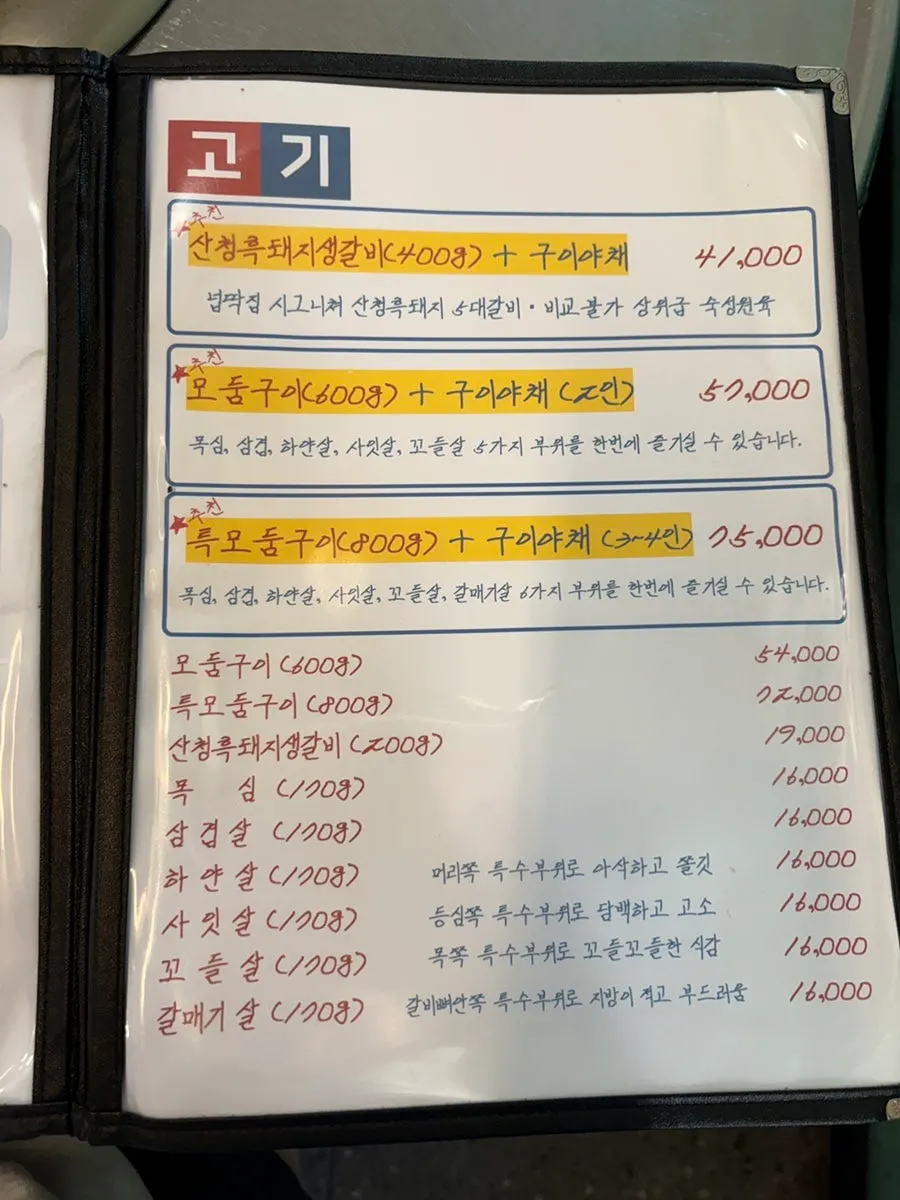 고기
추천
산청흑돼지생갈비(400g) + 구이야채 41,000
넙딱집 시그니쳐 산청흑돼지 5대갈비 · 비교불가 상위급 숙성원육
추천
모둠구이(600g) + 구이야채 (2인) 57,000
목심, 삼겹, 하얀살, 사잇살, 꼬들살 5가지 부위를 한번에 즐기실 수 있습니다.
추천
특모둠구이(800g) + 구이야채 (3~4인) 75,000
목심, 삼겹, 하얀살, 사잇살, 꼬들살, 갈매기살 6가지 부위를 한번에 즐기실 수 있습니다.
모둠구이 (600g) 54,000
특모둠구이 (800g) 72,000
산청흑돼지생갈비 (200g) 19,000
목 심 (170g) 16,000
삼겹살 (170g) 16,000
하얀살 (170g) 머리쪽 특수부위로 아삭하고 쫄깃 16,000
사잇살 (170g) 등심쪽 특수부위로 담백하고 고소 16,000
꼬들살 (170g) 목쪽 특수부위로 꼬들꼬들한 식감 16,000
갈매기살 (170g) 갈비뼈안쪽 특수부위로 지방이 적고 부드러움 16,000